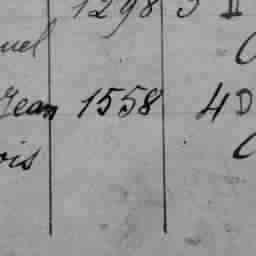 1298 3 D
uel
Jean 1558 4 D
ois